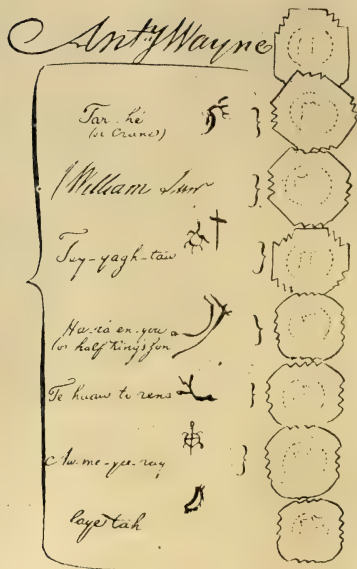 Anty Wayne
Tar-hé
(or Crane)
J William
Tey-yagh-taw
Ha-ro-en-you
(or half King's Son
Te haaw to rens
Aw-me-yee-ray
Faye tah